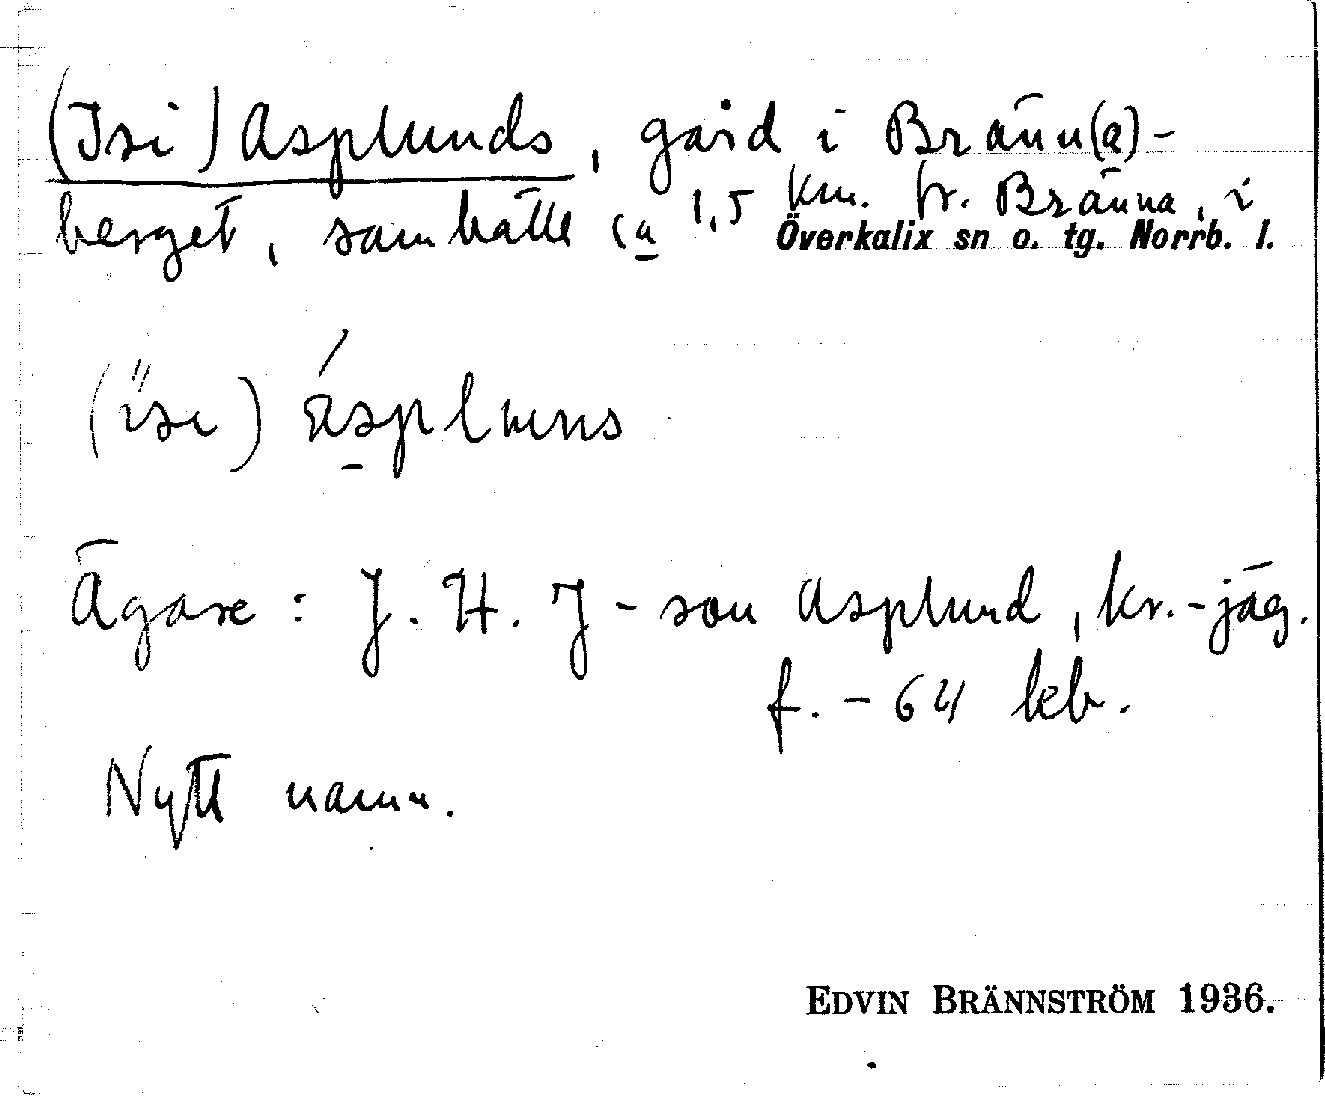 (Isi) Asplunds, gård i Bränn(a)-
berget, samhälle ca 1,5 km. fr. Bränna, i
Överkalix sn o. tg. Norrb. l.
(isi) áspluns
Ägare: J. H. J-son Asplund, kr.-jäg.
f. -64 leb.
Nytt namn.
EDVIN BRÄNNSTRÖM 1936.